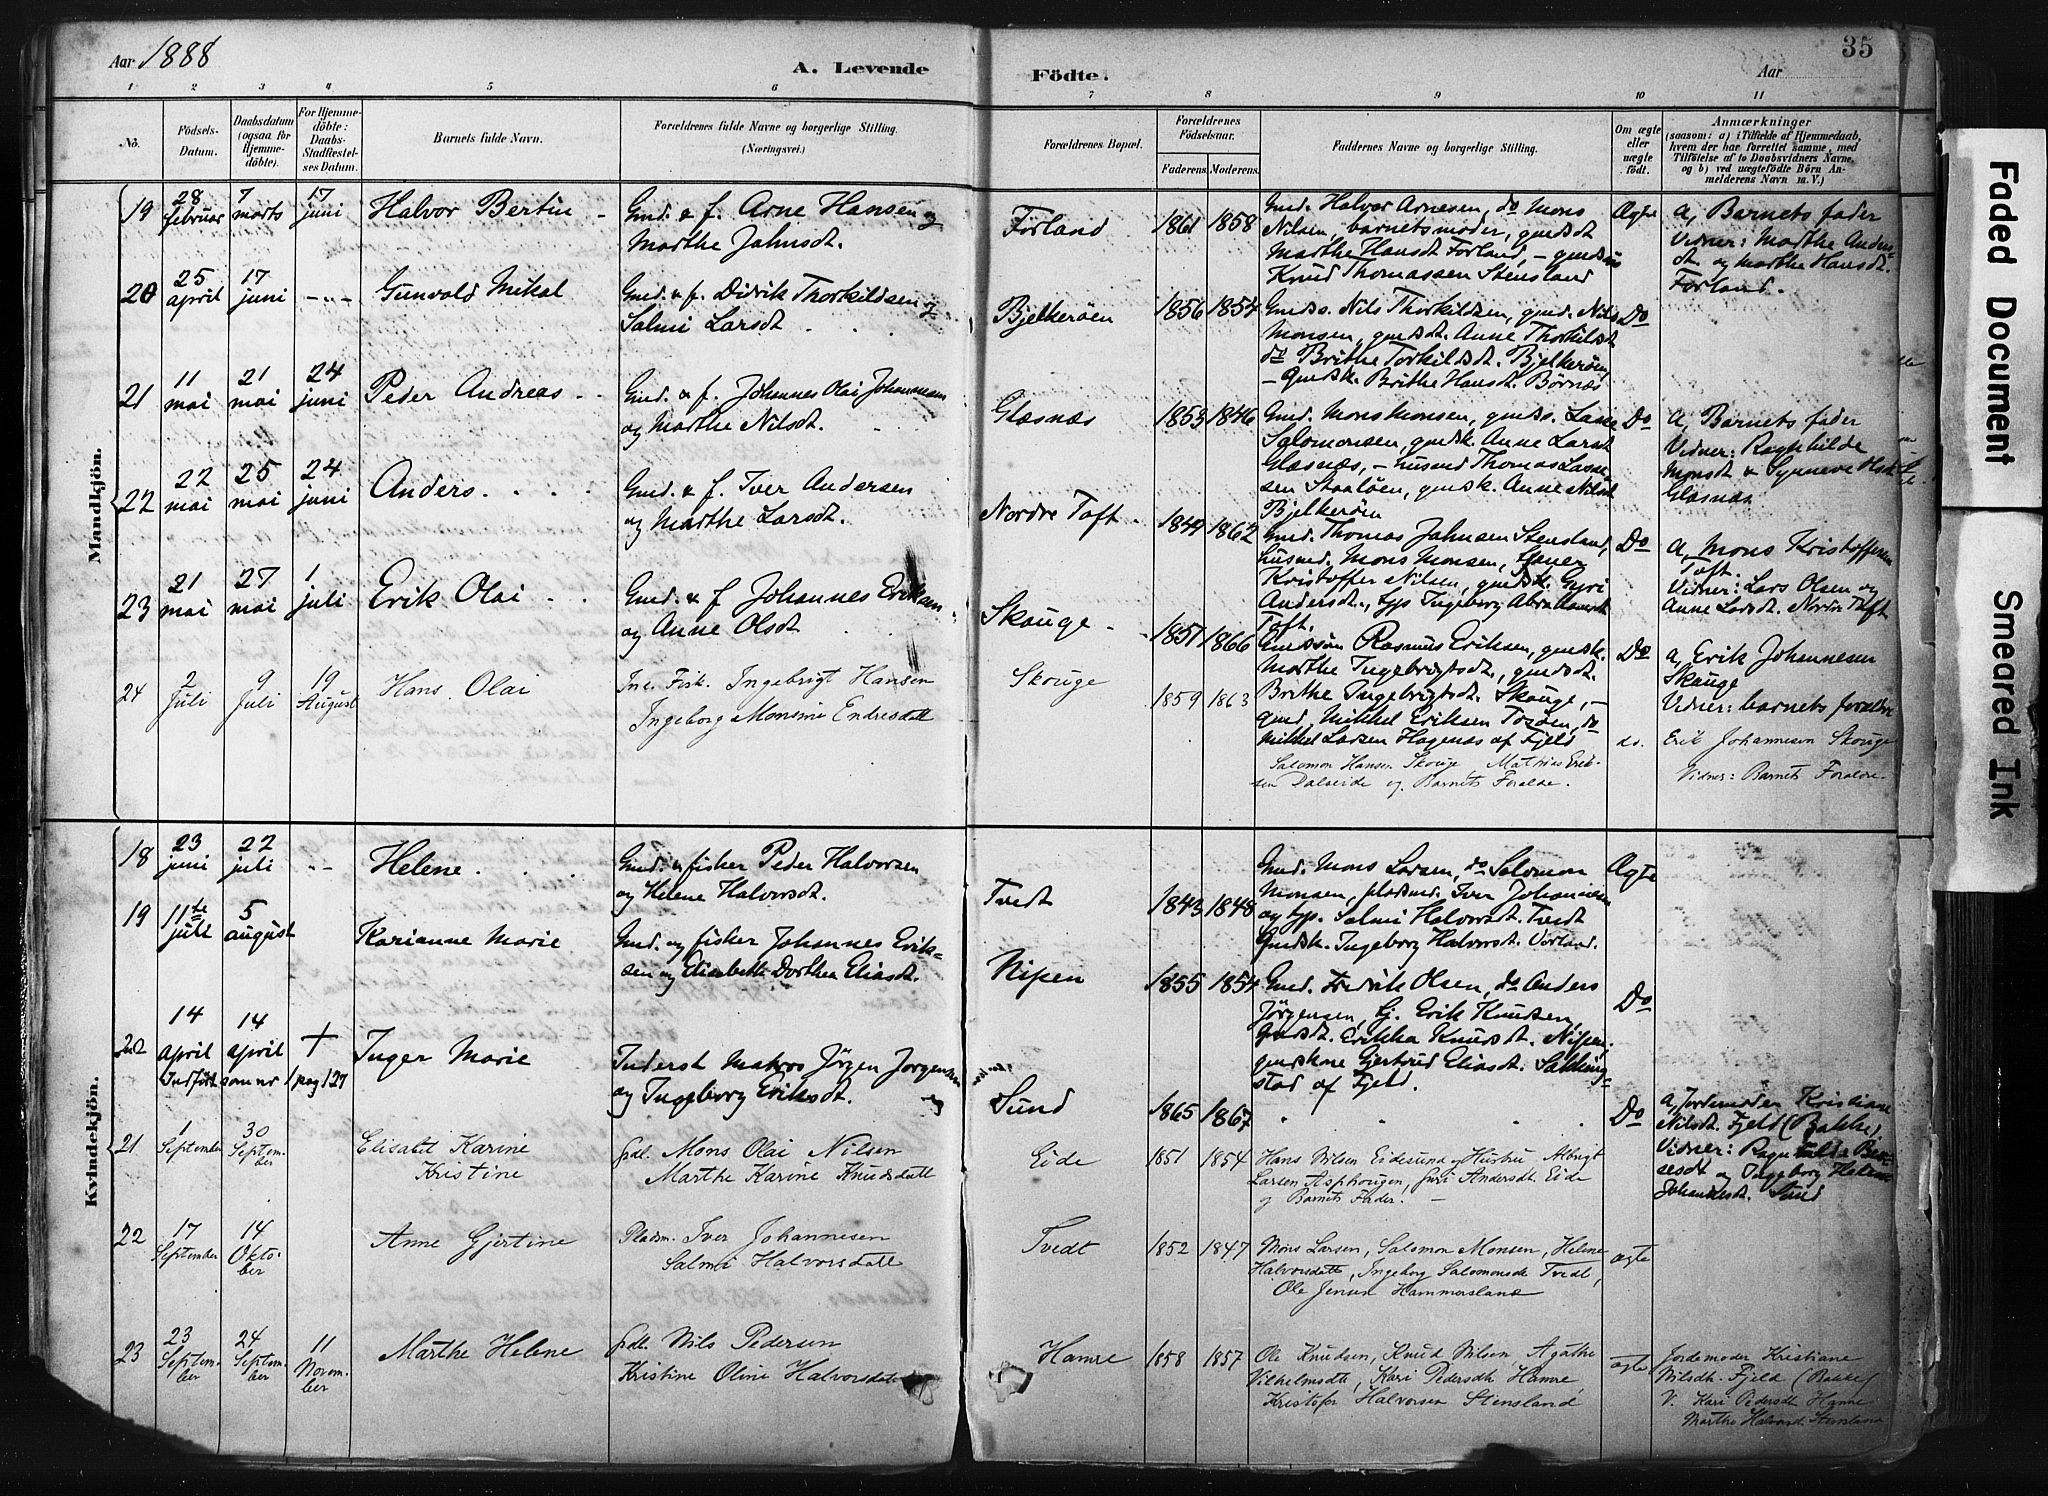 Aar 1888
A. Levende
Födte.
Aar
35
1 2 3 4 5 6 7 8 9 10 11
No.
Födsels-
Datum.
Daabsdatum
(ogsaa for
Hjemme-
döbte).
For Hjemme-
döbte:
Daabs-
Stadfæstel-
ses Datum.
Barnets fulde Navn.
Forældrenes fulde Navne og borgerlige Stilling.
(Næringsvei.)
Forældrenes Bopæl.
Forældrenes
Födselsaar.
Faderens. Moderens.
Faddernes Navne og borgerlige Stilling.
Om ægte
eller
uægte
födt.
Anmærkninger
(saasom: a) i Tilfælde af Hjemmedaab,
hvem der har forrettet samme, med
Tilföielse af to Daabsvidners Navne,
og b) ved uægtefödte Börn An-
melderens Navn m. V.)
Mandkjön.
19
28
februar
7
marts
17
juni
Halvor Bertin
Gmd. & f. Arne Hansen og
Marthe Johnsdt.
Förland
1861 1858
Gmd. Halvor Arnesen, do Mons
Nilsen, barnets moder, gmdsdt
Marthe Hansdt Förland, - gmdssön
Knud Thomassen Stensland
Ægte
a, Barnets fader
Vidner: Marthe Anders-
dt og Marthe Hansdt.
Förland.
20
25
april
17
juni
Gunvald Mikal
Gmd. & f. Didrik Thorkildsen og
Salmi Larsdt
Bjelkeröen
1856 1854
Gmdss. Nils Thorkildsen, gmd. Nils
Monsen, gmdsdt. Anne Thorkildsdt
do Brithe Torkildsdt. Bjelkeröen
- Gmdsk. Brithe Hansdt. Börnæs
Do
21
11
mai
21
mai
24
juni
Peder Andreas
Gmd. & f. Johannes Olai Johannesen
og Marthe Nilsdt.
Glæsnæs
1853 1846
Gmd. Mons Monsen, gmdss. Lasse
Salomonsen, gmdsk. Anne Larsdt
Glæsnæs, - husmd Thomas Lasse-
sen Staalöen, gmdsk. Anne Nilsdt
Bjelkeröen
Do
a, Barnets fader
Vidner: Ragnhilde
Monsdt & Synneve Olsdt
Glæsnæs
22
22
mai
25
mai
24
juni
Anders
Gmd. & f. Iver Andersen
og Marthe Larsdt.
Nordre Toft
1849 1862
Gmd. Thomas Johnsen Stensland,
husmd. Mons Monsen,
Kristoffer Nilsen, gmdsk. Gyri
Andersdt., typ Ingeborg Abrahamsdt
Toft.
Do
a, Mons Kristoffersen
Toft.
Vidner: Lars Olsen og
Anne Larsdt. Nordre Toft
23
21
mai
27
mai
1
juli
Erik Olai
Gmd. & f Johannes Eriksen
og Anne Olsdt
Skouge
1851 1866
Gmdssön Rasmus Eriksen, gmdsk.
Marthe Ingebrigtsdt, gmdsdt.
Brithe Ingebrigtsdt. Skouge, -
gmd. Mikkel Eriksen Tosöen, do
Mikkel Larsen Hagenæs af Fjeld
Do
a, Erik Johannesen
Skouge
Vidner: barnets forældre
24
2
Juli
9
Juli
19
August
Hans Olai
Ind. Fisk. Ingebrigt Hansen
Ingeborg Monsine Endresdatt
Skouge
1859 1863
Salomon Hansen Skouge, Mathias Erik-
sen Dalseide og Barnets Foralde.
do.
Erik Johannesen Skouge
Vidner: Barnets Foralde.
Kvindekjön.
18
23
juni
22
juli
Helene
Gmd. & fisker Peder Halvorsen
og Helene Halvorsdt.
Tvedt
1843 1848
Gmd. Mons Larsen, do Salomon
Monsen, pladsmd. Iver Johannesen
og typ. Salmi Halvorsdt. Tvedt
Gmdsk. Ingeborg Halvorsdt. Vorland.
Ægte
19
11te
juli
5
august
Karianne Marie
Gmd. og fisker Johannes Erik-
sen og Elisabeth Dorthea Eliasdt.
Nipen
1855 1854
Gmd. Fredrik Olsen, do Anders
Jörgensen, Ej. Erik Knudsen,
Gmdsdt. Erikka Knudsdt. Nipen.
gmdskone Gjertrud Eliasdt. Sekking-
stad af Fjeld.
Do
20
14
april
14
april
+
Indfört som nr 1 pag 127
Inger Marie
Inderst Matros Jörgen Jorgensen
og Ingeborg Eriksdt.
Sund
1865 1867
Do
a, Jordemoder Kristiane
Nilsdt. Fjeld (Bakke)
Vidner: Ragnhilde
og Ingeborg Helene
Johannesdt. Sund
21
1
September
30
Septem-
ber
Elisabet Karine
Kristine
gdl. Mons Olai Nilsen
Marthe Karine Knudsdatt
Eide
1851 1854
Hans Nilsen Eidesund og Hustru Albrigt
Larsen Asphougen, Guri Andersdt. Eide
og Barnets Fader. -
22
17
September
14
Okto-
ber
Anne Gjertine
Pladsm. Iver Johannesen
Salmi Halvorsdatt
Tvedt
1852 1847
Mons Larsen, Salomon Monsen, Helene
Halvorsdatt, Ingeborg Salomonsdt Tvedt,
Ole Jensen Hammersland
ægte
23
23
Septem-
ber
24
Septem-
ber
11
Novem-
ber
Marthe Helene
gdl. Nils Pedersen
Kristine Oline Halvorsdatt
Hamre
1858 1857
Ole Knudsen, Knud Nilsen Agathe
Vilhelmsdtt, Kari Pedersdtt Hamre,
Kristofer Halvorsen Stensland
ægte
Jordemoder Kristiane
Nilsdtt Fjeld (Bakke)
V. Kari Pedersdt Hamre
Marthe Halvorsd. Stensland
Faded Document
Smeared Ink